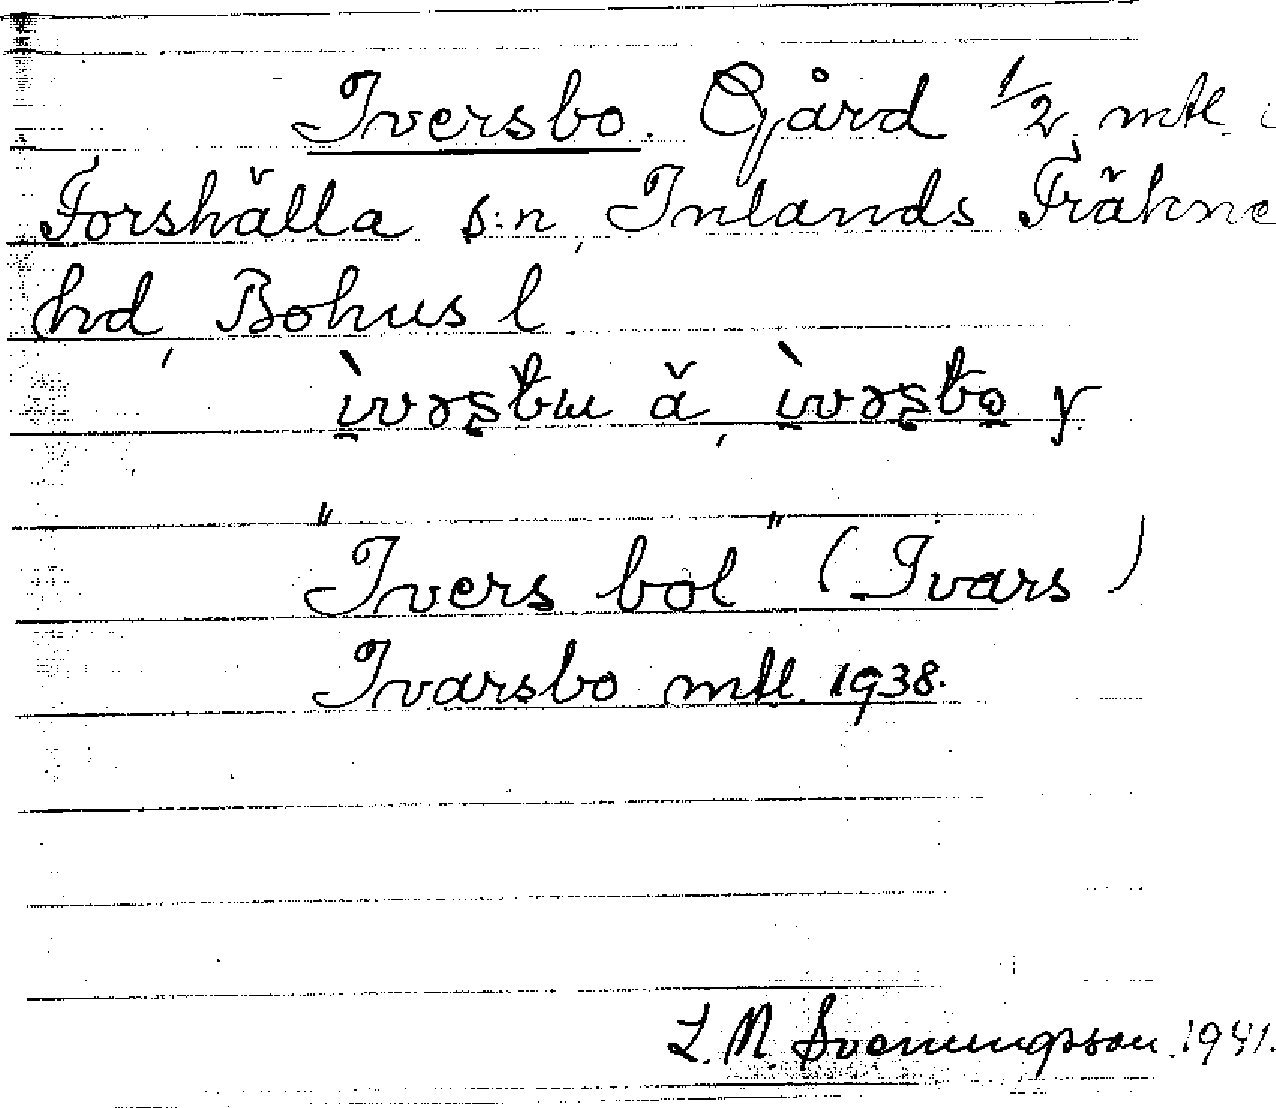 Iversbo. Gård 1/2 mtl.
Forshälla s:n, Inlands Fräkne
hd, Bohus l
ä, y
"Ivers bol" (Ivars)
Ivarsbo mtl. 1938.
L. N. Svenungsson. 1941.